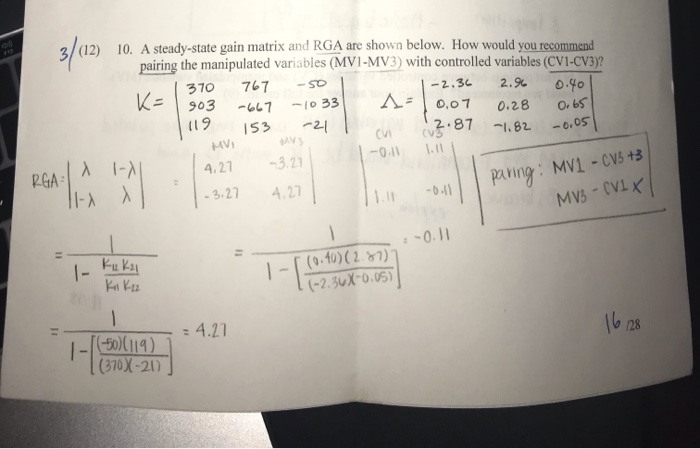 3/(12) 10. A steady-state gain matrix and RGA are shown below. How would you recommend
pairing the manipulated variables (MV1-MV3) with controlled variables (CV1-CV3)?
K= | 370 767 -50 |
| 903 -667 -1033 |
| 119 153 -21 |
Λ= | -2.36 2.96 0.40 |
| 0.07 0.28 0.65 |
| 2.87 -1.82 -0.05 |
RGA= | λ 1-λ |
| 1-λ λ |
MV1 MV3
= | 4.27 -3.27 |
| -3.27 4.27 |
CV1 CV3
| -0.11 1.11 |
| 1.11 -0.11 |
paring: MV1 - CV3 +3
MV3 - CV1 X
= 1 / 1- K12 K21 / K11 K22
= 1 / 1-[(0.40)(2.87) / (-2.36)(-0.05)] = -0.11
= 1 / 1-[(-50)(119) / (370)(-21)] = 4.27
16/28